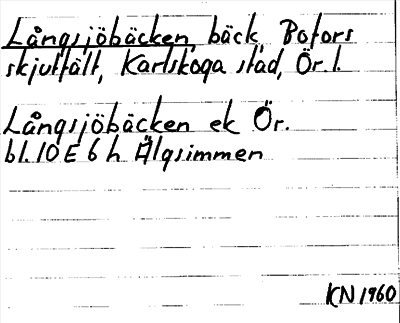 Långsjöbäcken, bäck, Bofors
skjutfält, Karlskoga stad, Ör. l.
Långsjöbäcken ek Ör.
bl. 10 E 6 h Älgsimmen
KN 1960